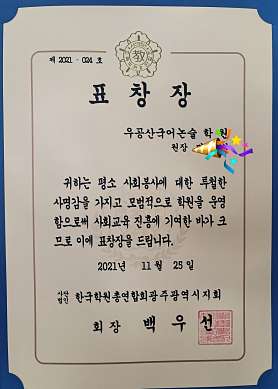 제 2021 - 024 호
敎
표창장
우공산국어논술 학원
원장
귀하는 평소 사회봉사에 대한 투철한
사명감을 가지고 모범적으로 학원을 운영
함으로써 사회교육 진흥에 기여한 바가 크
므로 이에 표창장을 드립니다.
2021년 11월 25일
사단법인 한국학원총연합회광주광역시지회
회장 백우선